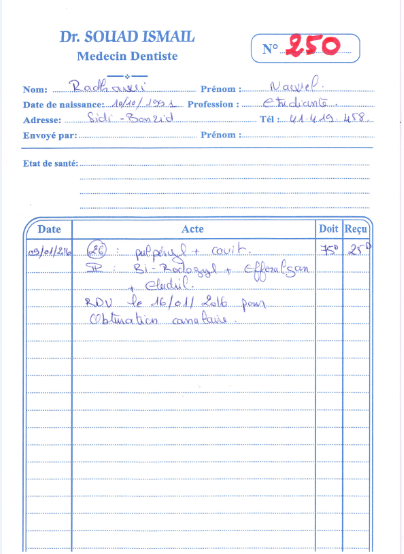 Dr. SOUAD ISMAIL
Medecin Dentiste
N° 250
Nom: Radhouani Prénom : Nawel.
Date de naissance: 10/10/1991 Profession : etudiante
Adresse: Sidi-Bouzid Tél : 41.419.458.
Envoyé par: Prénom :
Etat de santé:
Date Acte Doit Reçu
09/01/2016 26 : pulpéryl + cavit. 75D 25D
SP : Bi-Rodogyl + Efferalgan
+ eludril.
RDV le 16/01/2016 pour
Obturation canalaire.